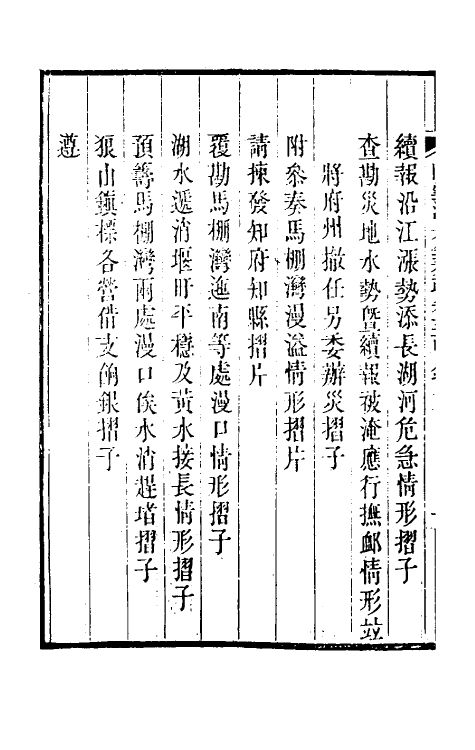 續報沿江漲勢添長湖河危急情形摺子
查勘災地水勢曁續報被淹應行撫䘏情形並
將府州撤任另委辦災摺子
附參奏馬棚灣漫溢情形摺片
請揀發知府知縣摺片
覆勘馬棚灣迤南等處漫口情形摺子
湖水遞消堰盱平穩及黃水接長情形摺子
預籌馬棚灣兩處漫口俟水消趕堵摺子
狼山鎭標各營借支餉銀摺子
遵